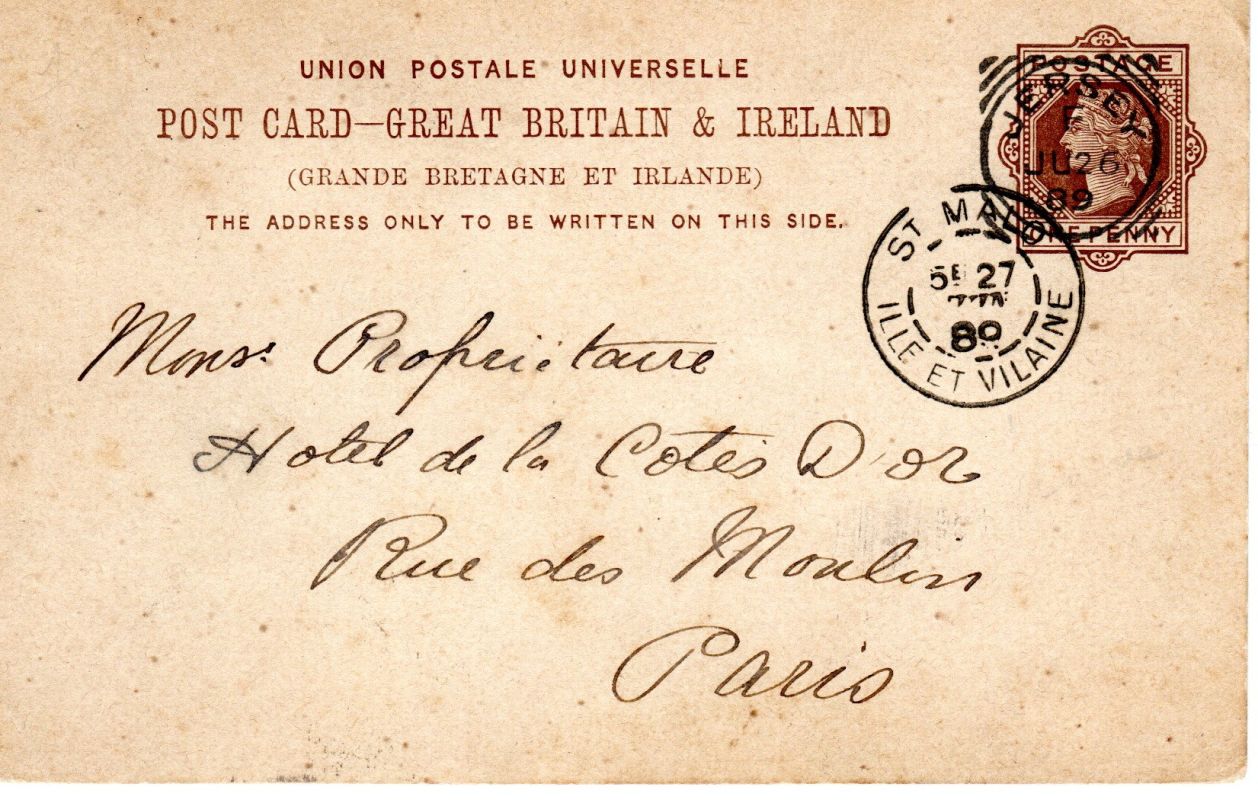 UNION POSTALE UNIVERSELLE
POST CARD—GREAT BRITAIN & IRELAND
(GRANDE BRETAGNE ET IRLANDE)
THE ADDRESS ONLY TO BE WRITTEN ON THIS SIDE.
POSTAGE
ONE PENNY
JERSEY
F
JU 26
89
ST MALO
5E 27
JUIN
89
ILLE ET VILAINE
Monsr. Propriétaire
Hotel de la Cotes D'or
Rue des Moulin
Paris